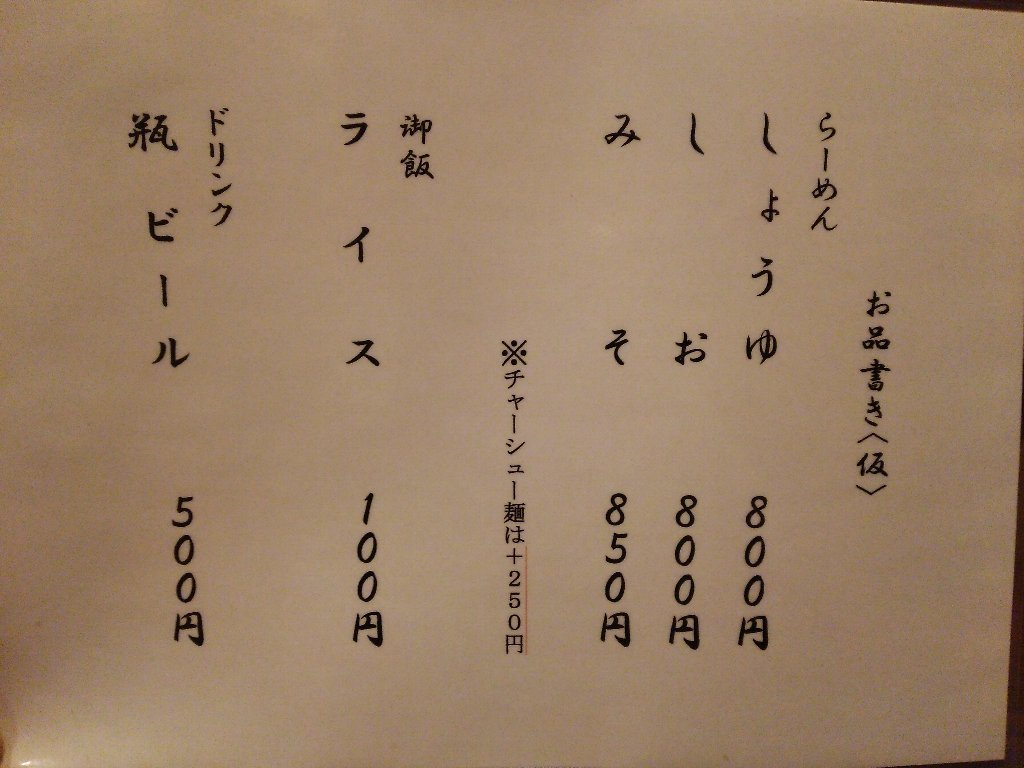 お品書き〈仮〉
らーめん
しょうゆ 800円
しお 800円
みそ 850円
※チャーシュー麺は＋250円
御飯
ライス 100円
ドリンク
瓶ビール 500円